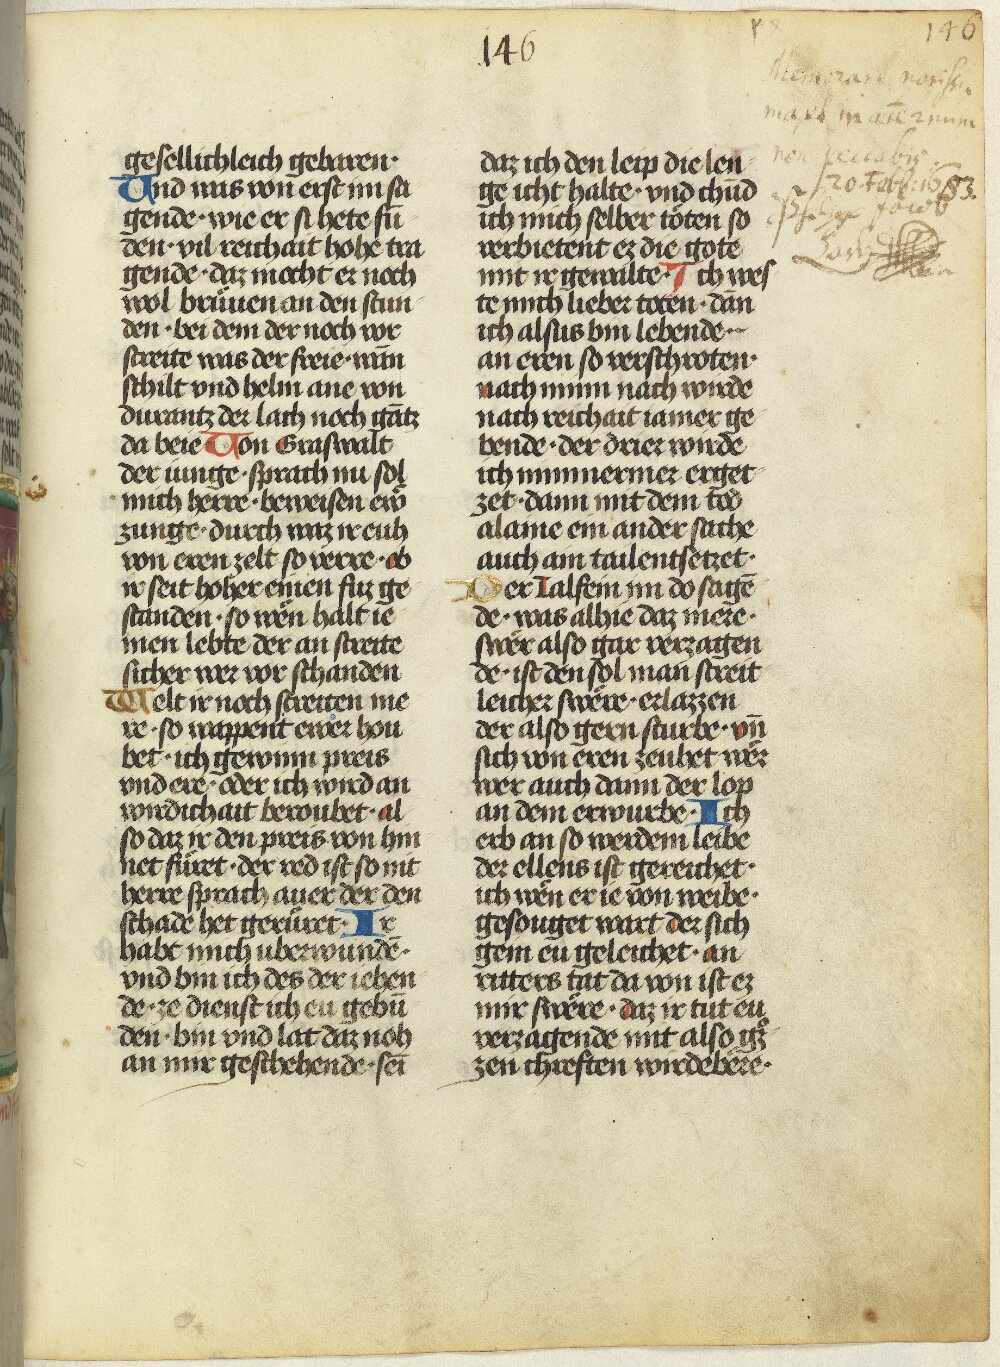 146
146
Memorare novissi
ma et in aeternum
non peccabis
20 Feb: 1683
gesellichleich gebaren·
Vnd was von erst im sa
gende·wie er si hete fū
den·vil reichait hohe tra
gende·daz mocht er noch
wol brüuen an den stun
den·bei dem der noch vor
streite was der freie·wān
schilt vnd helm ane von
durantz der lach noch gātz
da beie Von Graswalt
der iunge·sprach nu sol
mich herre·beweisen ewr
zunge·durch waz ir euh
von eren zelt so verre·ob
ir seit hoher einen fuz ge
standen·so wen halt ie
men lebte der an streite
sicher wer vor schanden
Welt ir noch streiten me
re·so wappent ewer hou
bet·ich gewinn preis
vnd ere·oder ich wird an
wirdichait beroubet·al
so daz ir den preis von hin
net füret·der red ist so nit
herre sprach auer der den
schade het gerüret·Ir
habt mich uberwundē·
vnd bin ich des der ieben
de·ze dienst ich eu gebū
den·bin vnd lat daz noh
an mir geschehende·sei
daz ich den leip die len
ge icht halte·vnd chūd
ich mich selber töten so
verbietent ez die gote
mit ir gewalte·Ich wes
te mich lieber toten·dan
ich alsus bin lebende·
an eren so verschroten·
nach minn nach wirde
nach reichait iamer ge
bende·der drier wirde
ich nimmermer erget
zet·dann mit dem tod
alaine ein ander sache
auch ain tailentsetzet·
Der Talfein im do sagē
de·was alhie daz mere·
swer also gar verzagen
de·ist den sol man streit
leicher swere·erlazzen
der also gern sturbe·vn̄
sich von eren zeuhet wer
wer auch dann der lop
an dem erwurbe·Ich
erb an so werdem leibe
der ellens ist gereichet·
ich wen er ie von weibe·
gesouget wart der sich
gem eu geleichet·an
ritters tat da von ist ez
mir swere·daz ir tut eu
verzagende mit also gz
zen chreften wirdebere·